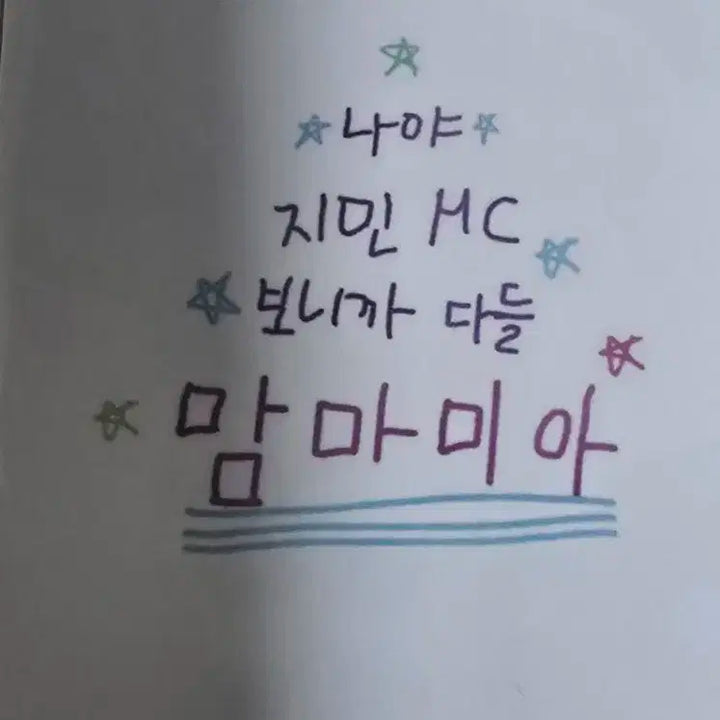 나야
지민 MC
보니까 다들
맘마미아